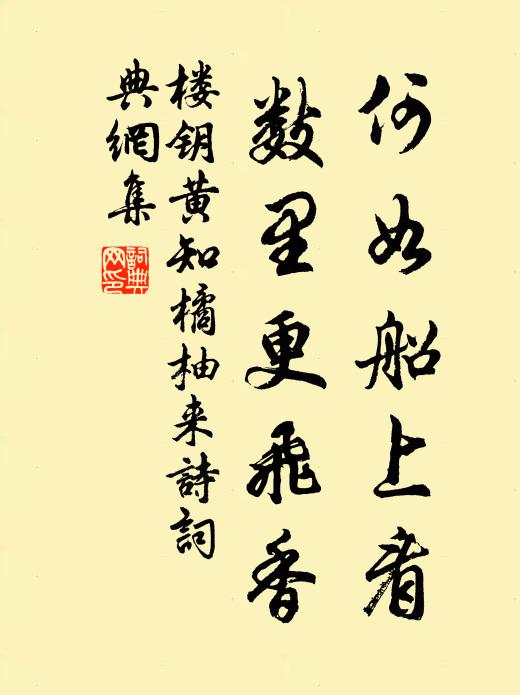 何如船上者
数里更飛香
楼钥黄知橘柚来詩詞
典網集
詞典
网印